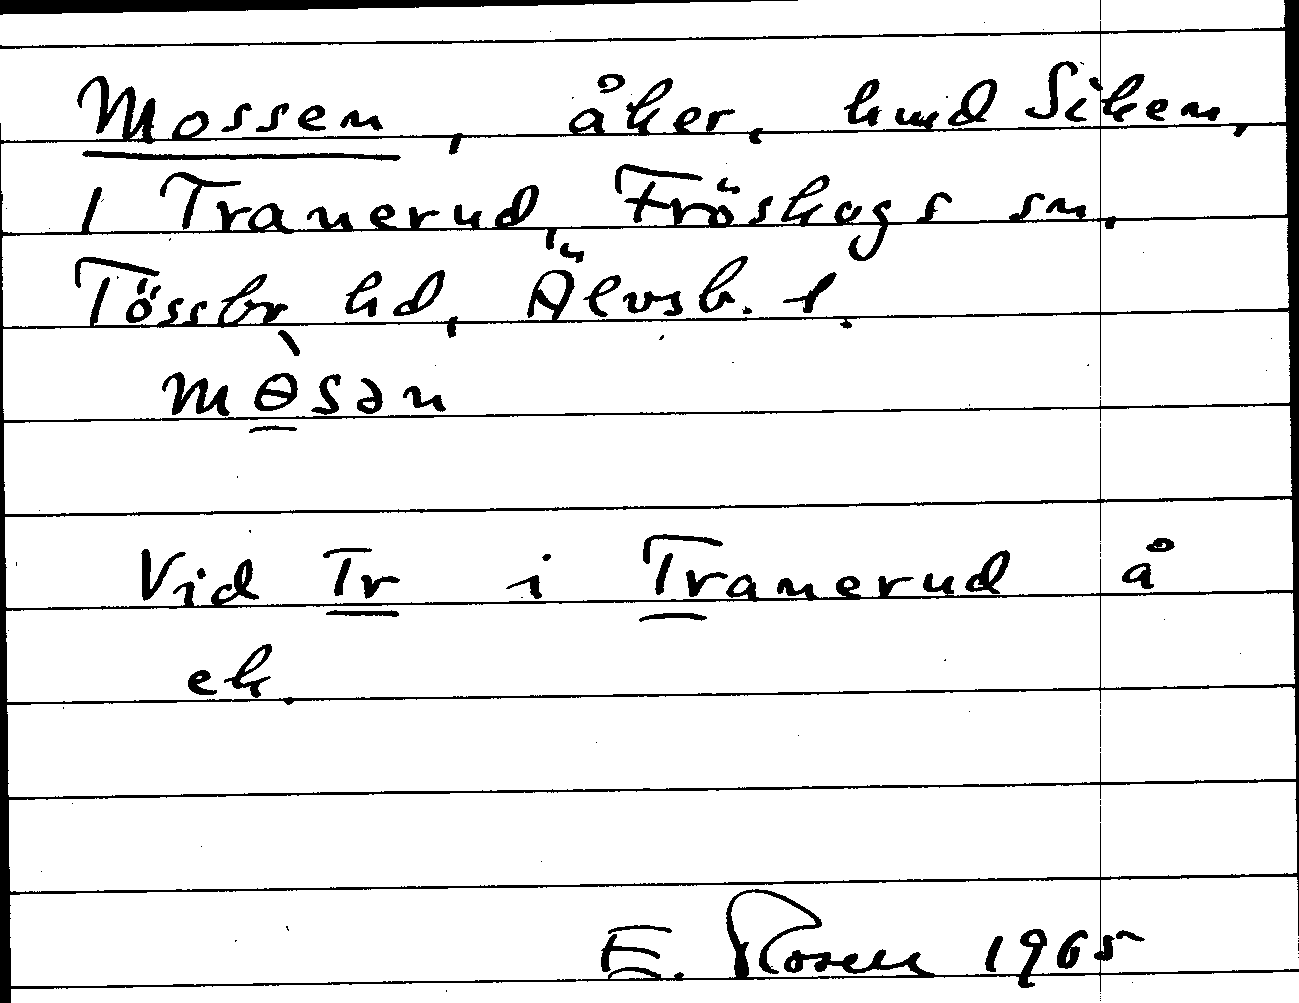 Mossen, åker, hmd Siken,
1 Tranerud, Fröskogs sn,
Tössbo hd, Älvsb. l.
mɵ̀sən
Vid Tr i Tranerud å
ek.
E. Rosen 1965